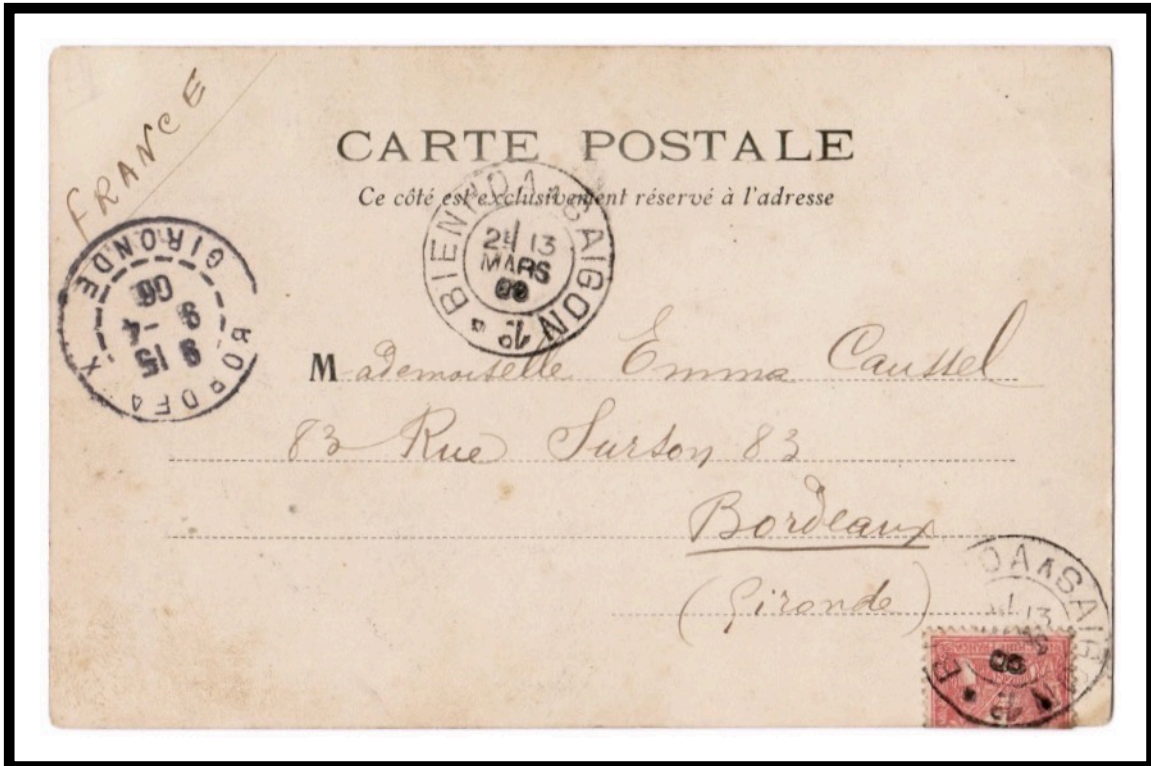 FRANCE
CARTE POSTALE
Ce côté est exclusivement réservé à l'adresse
BIENHOA A SAIGON
13
MARS
06
BORDEAUX GIRONDE
9 15
9 -4
06
Mademoiselle Emma Caussel
83 Rue Surson 83
Bordeaux
(Gironde)
OA A SAIG N
13